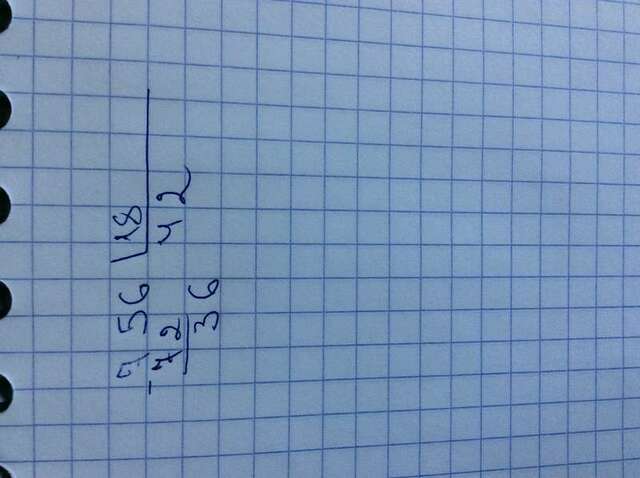 756 18
-72 42
36